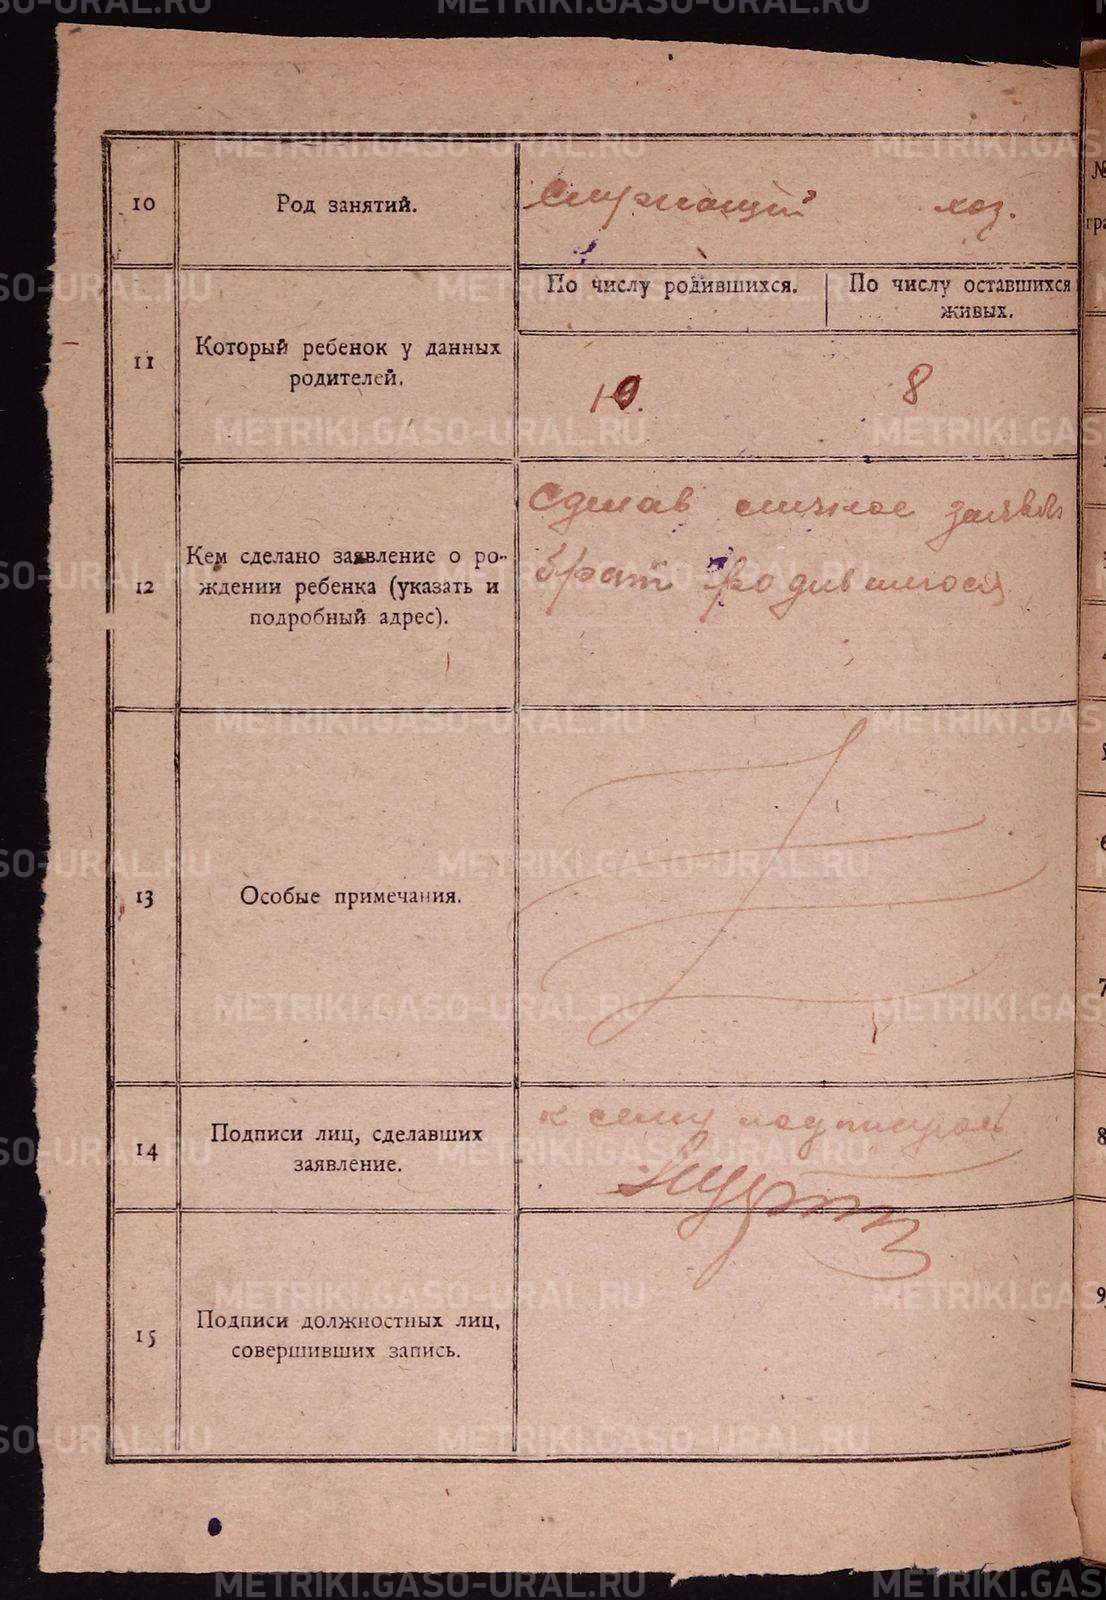 10
Род занятий.
Служащий хоз.
11
Который ребенок у данных
родителей.
По числу родившихся.
По числу оставшихся
живых.
10.
8
12
Кем сделано заявление о ро-
ждении ребенка (указать и
подробный адрес).
Сделав личное заявл
брат родившагося
13
Особые примечания.
14
Подписи лиц, сделавших
заявление.
к сему
15
Подписи должностных лиц,
совершивших запись.
№
гра
6
7
8
9
METRIKI.GASO-URAL.RU